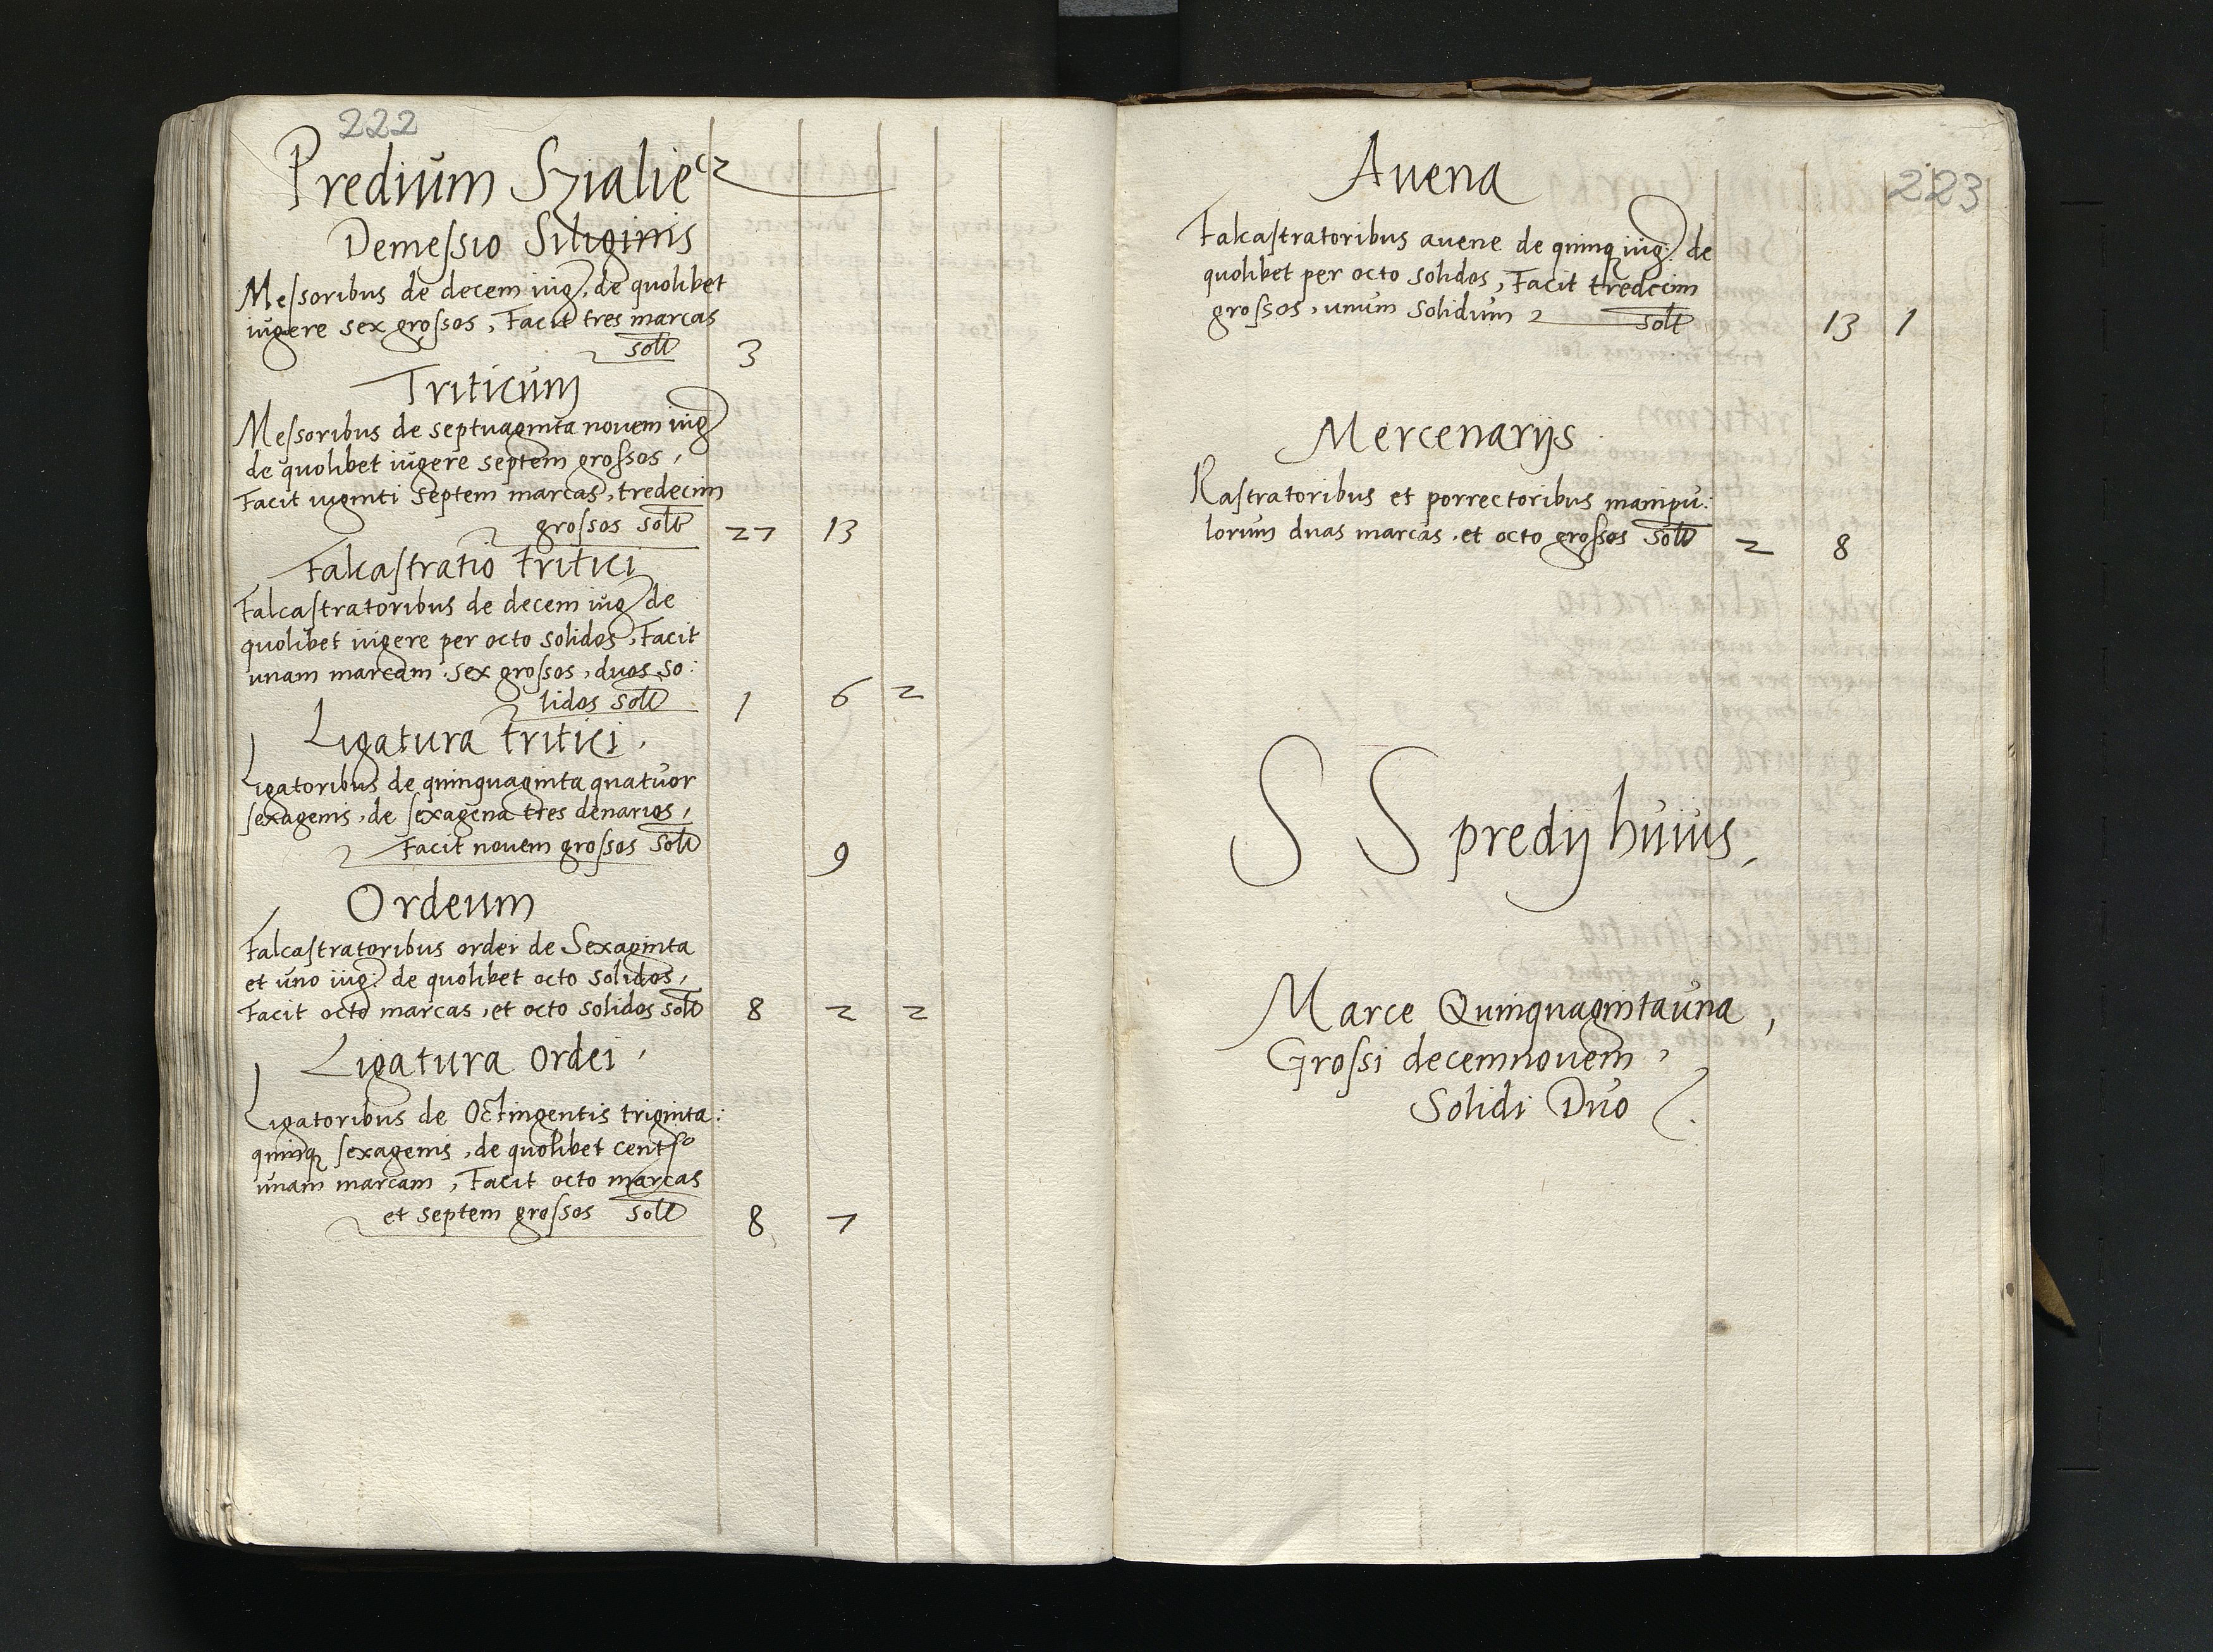 222
Predium Szialiecz
Demessio Siliginis
Messoribus de decem iug. de quolibet
iugere sex grossos, Facit tres marcas
solt 3
Triticum
Messoribus de septuaginta novem iug
de quolibet iugere septem grossos,
Facit viginti septem marcas, tredecim
grossos solt 27 13
Falcastratio tritici
Falcastratoribus de decem iug de
quolibet iugere per octo solidos, Facit
unam marcam. sex grossos, duos so:
lidos solt 1 6 2
Ligatura tritici,
Ligatoribus de quinquaginta quatuor
sexagenis, de sexagena tres denarios,
Facit novem grossos solt 9
Ordeum
Falcastratoribus ordei de Sexaginta
et uno iug: de quolibet octo solidos,
Facit octo marcas, et octo solidos solt 8 2 2
Ligatura ordei,
Ligatoribus de Octingentis triginta:
quinq sexagenis, de quolibet cent
unam marcam, Facit octo marcas
et septem grossos solt 8 7
223
Avena
Falcastratoribus avene de quinq iug: de
quolibet per octo solidos, Facit tredecim
grossos, unum solidum solt 13 1
Mercenarijs
Rastratoribus et porrectoribus manipu:
lorum duas marcas, et octo grossos solt 2 8
S S predij huius,
Marce Quinquagintauna,
Grossi decemnovem,
Solidi Duo